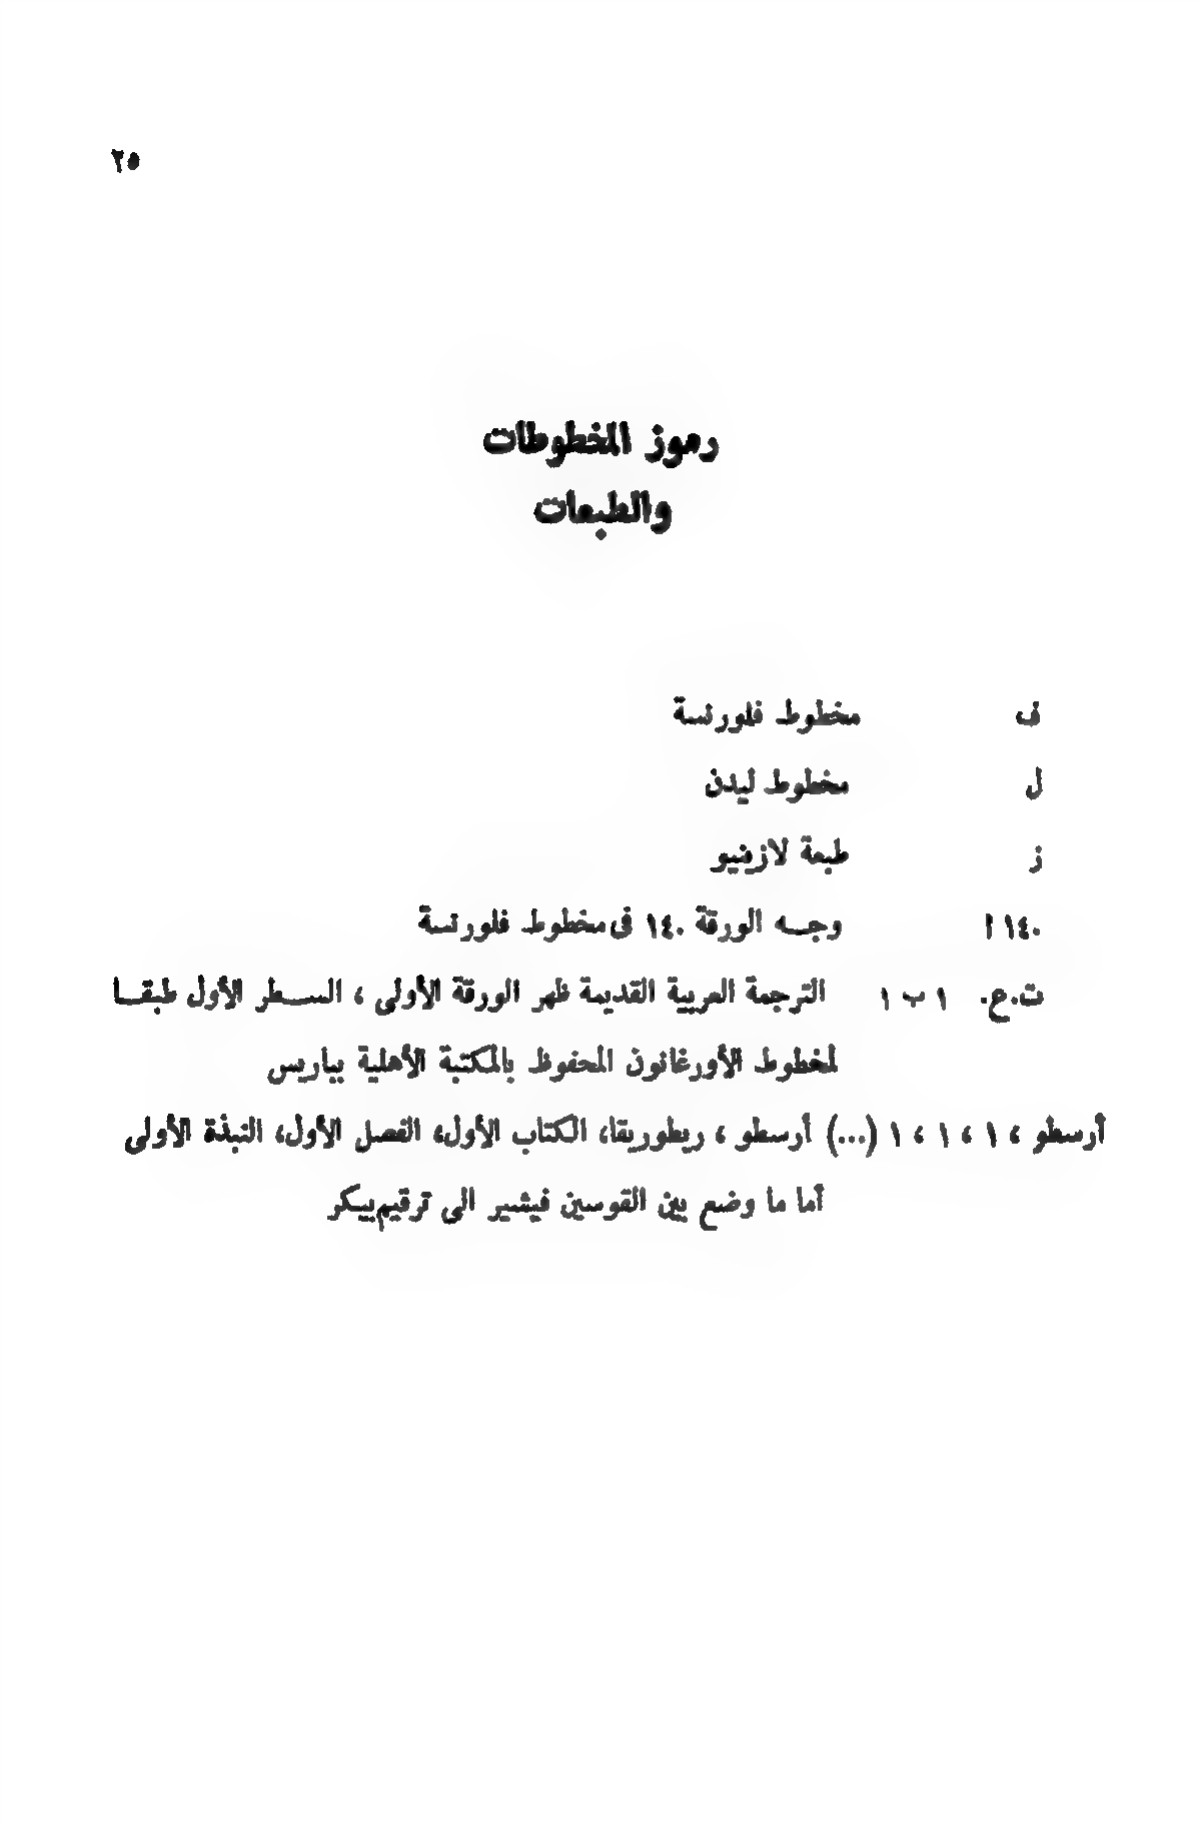 ٢٥
رموز المخطوطات
والطبعات
ف مخطوط فلورنسة
ل مخطوط ليدن
ز طبعة لازينيو
١٤٠ ا وجه الورقة ١٤٠ فى مخطوط فلورنسة
ت.ع. ١ ب ١ الترجمة العربية القديمة ظهر الورقة الأولى ، السطر الأول طبقا
لمخطوط الأورغانون المحفوظ بالمكتبة الأهلية بباريس
أرسطو ، ١ ، ١ ، ١ (...) أرسطو ، ريطوريقا، الكتاب الأول، الفصل الأول، النبذة الأولى
أما ما وضع بين القوسين فيشير الى ترقيم بيكر